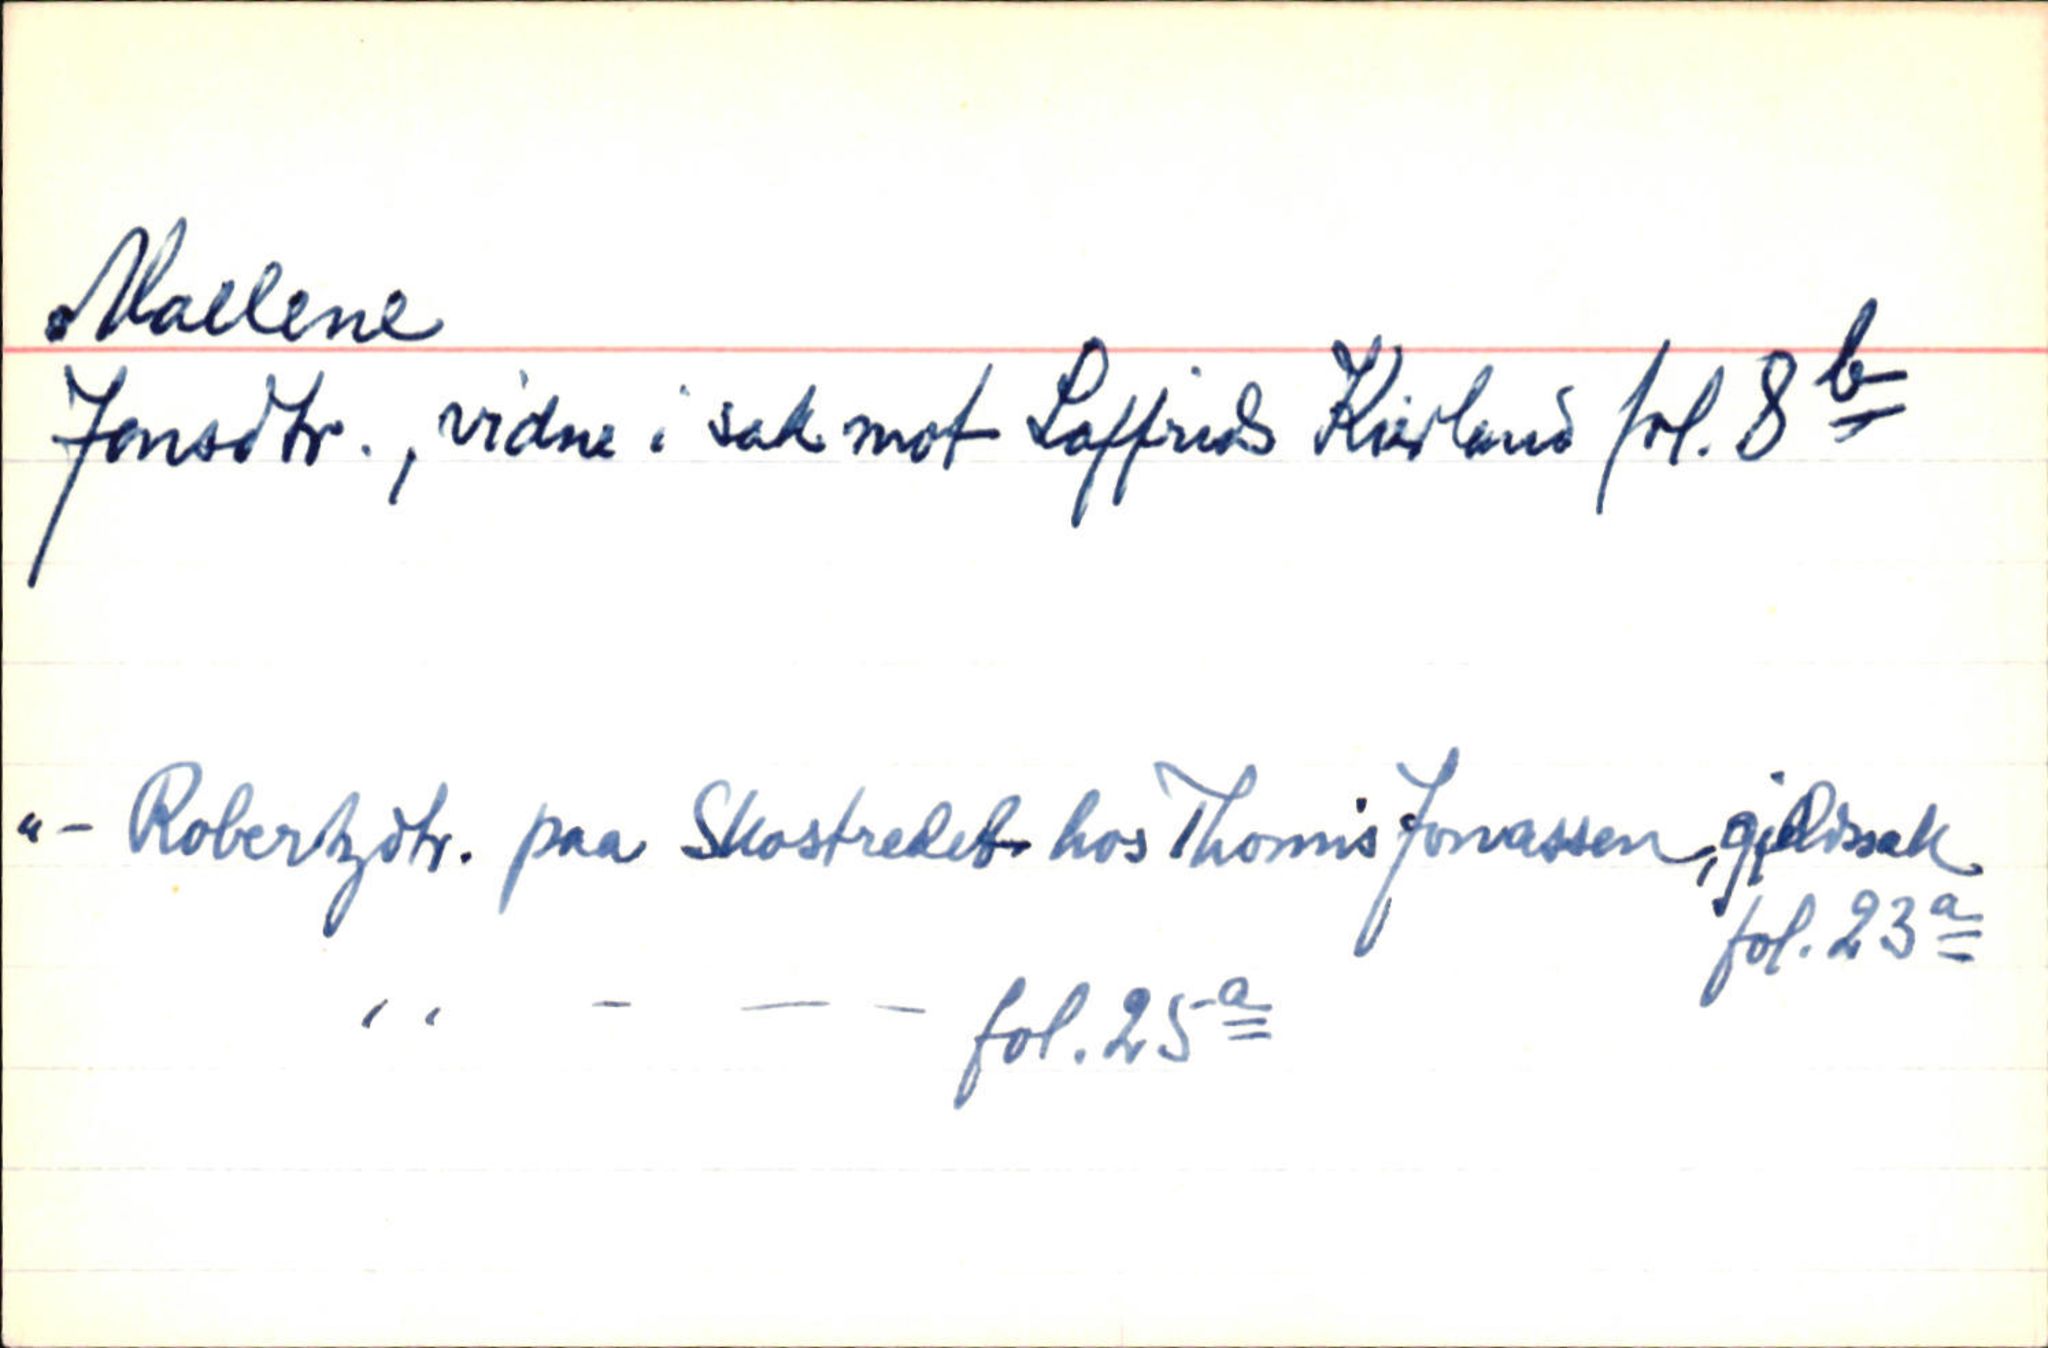 Maelene
Jonsdtr., vidne i sak mot Laffrids Kieland fol. 8b
"- Robertzdtr. paa Skostredet hos Thomis Jonassen, gjeldssak
fol. 23a
" - — - fol. 25a